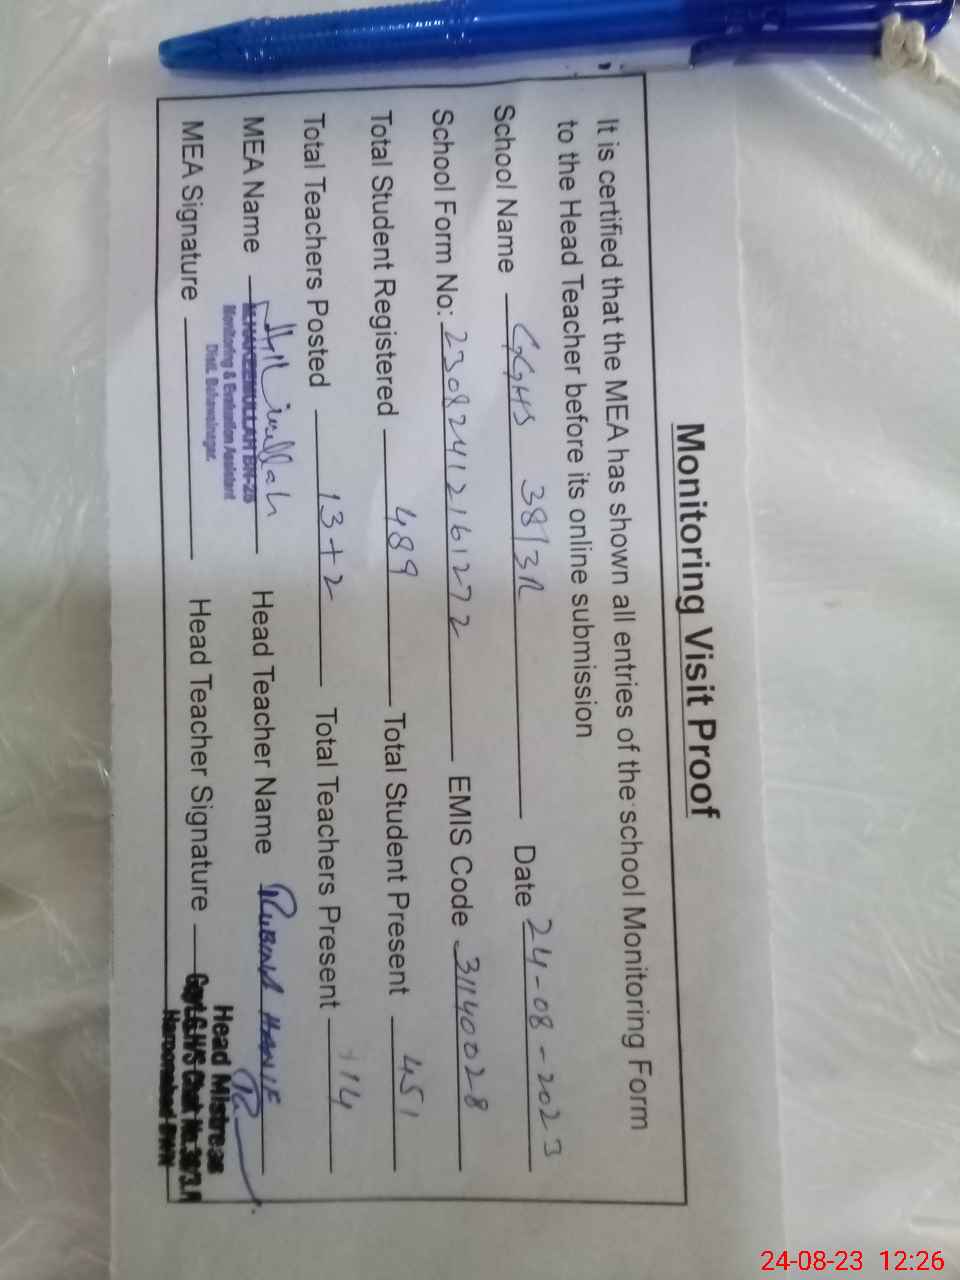 Monitoring Visit Proof
It is certified that the MEA has shown all entries of the school Monitoring Form
to the Head Teacher before its online submission
School Name GGHS 38/3R Date 24-08-2023
School Form No: 23082412161272 EMIS Code 31140028
Total Student Registered 489 Total Student Present 451
Total Teachers Posted 13+2 Total Teachers Present 14
MEA Name Head Teacher Name Rubina Hanif
Monitoring & Evaluation Assistant
Distt. Bahawalnagar.
MEA Signature Head Teacher Signature
Head Mistress
Govt.G.H/S Chak No.38/3.R
Haroonabad BWN
24-08-23 12:26